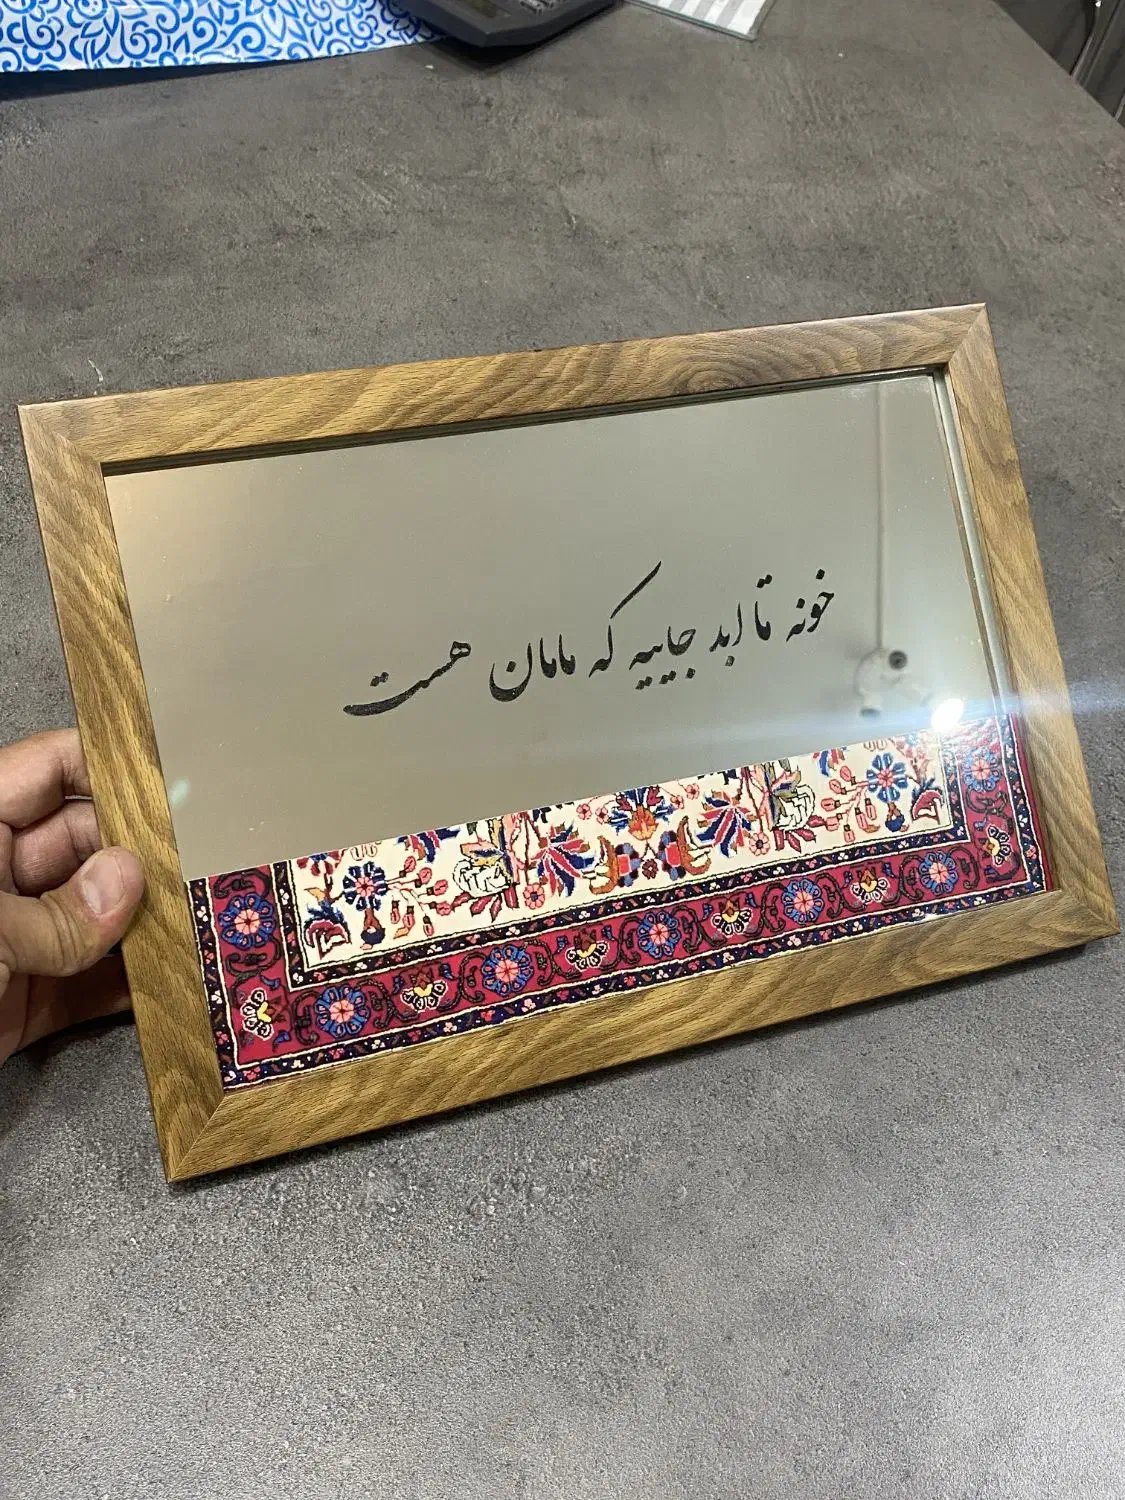 خونه تا ابد جاییه که مامان هست